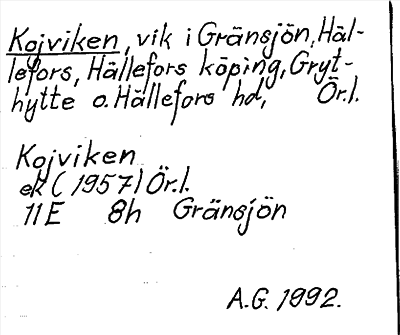 Kojviken, vik i Gränsjön, Häl-
lefors, Hällefors köping, Gryt-
hytte o. Hällefors hd, Ör.l.
Kojviken
ek (1957) Ör.l.
11E 8h Gränsjön
A.G. 1992.